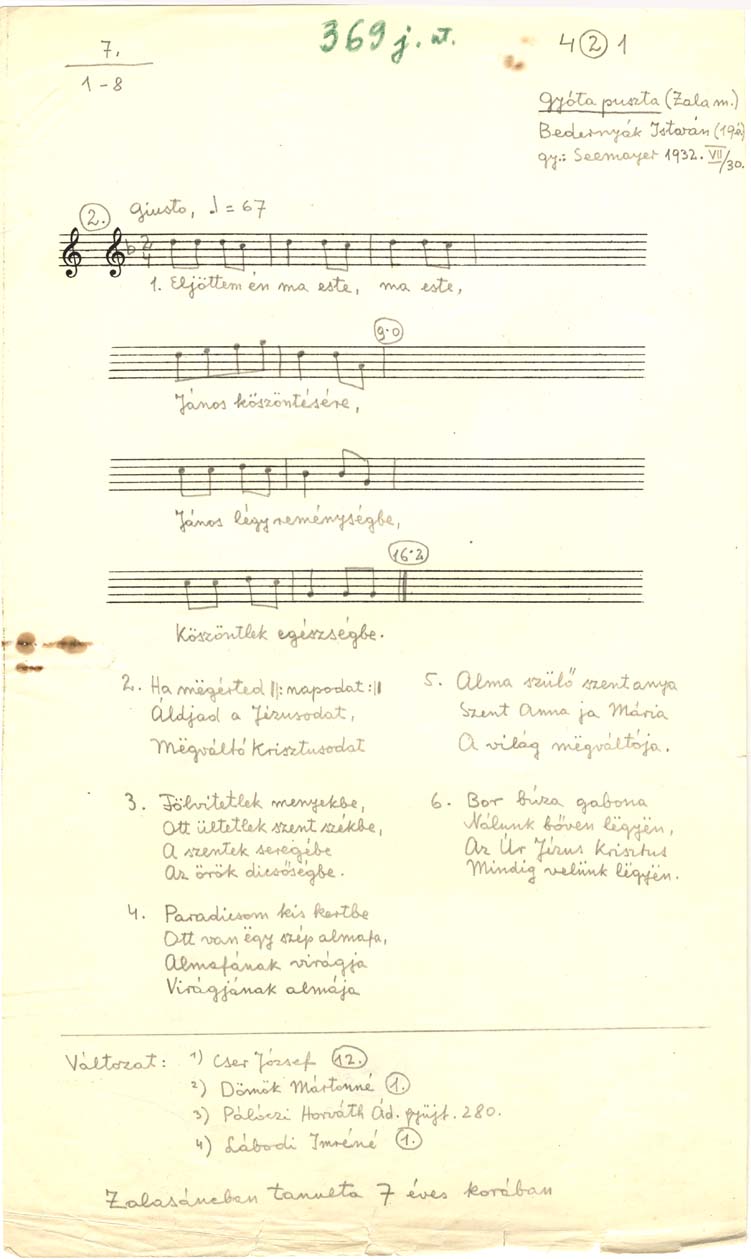 369 j. nt.
4 2 1
7.
1-8
Gyóta puszta (Zala m.)
Bedernyák István (19é)
gy.: Seemayer 1932. VII/30.
2. Giusto, ♩ = 67
2
4
1. Eljöttem én ma este, ma este,
9·0
János köszöntésére,
János légy reménységbe,
16·2
Köszöntlek egészségbe.
2. Ha mëgérted ||: napodat :||
Áldjad a Jézusodat,
Mëgváltó Krisztusodat
3. Fölvitetlek menyekbe,
Ott ültetlek szent székbe,
A szentek seregébe
Az örök dicsőségbe.
4. Paradicsom kis kertbe
Ott van ëgy szép almafa,
Almafának virágja
Virágjának almája
5. Alma szülő szent anya
Szent Anna ja Mária
A világ mëgváltója.
6. Bor búza gabona
Nálunk bőven légyën,
Az Úr Jézus Krisztus
Mindig velünk légyën.
Változat: 1) Cser József 12.
2) Dömök Mártonné 1.
3) Pálóczi Horváth Ád. gyüjt. 280.
4) Lábodi Imréné 1.
Zalasáncban tanulta 7 éves korában